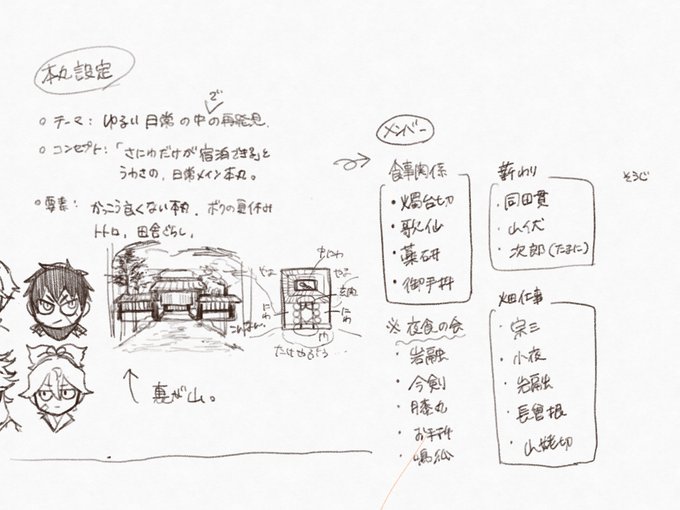 本丸設定
○ テーマ: ゆるい日常の中での再発見.
○ コンセプト:「さにわだけが宿泊できる」と
うわさの、日常メイン本丸。
○ 要素: かっこう良くない本丸、ボクの夏休み
トトロ、田舎ぐらし。
裏が山。
メンバー
食事関係
・燭台切
・歌仙
・薬研
・御手杵
※ 夜食の会
・岩融
・今剣
・膝丸
・お手杵
・鳴狐
薪わり
・同田貫
・山伏
・次郎(たまに)
畑仕事
・宗三
・小夜
・岩融
・長曽根
・山姥切
そうじ